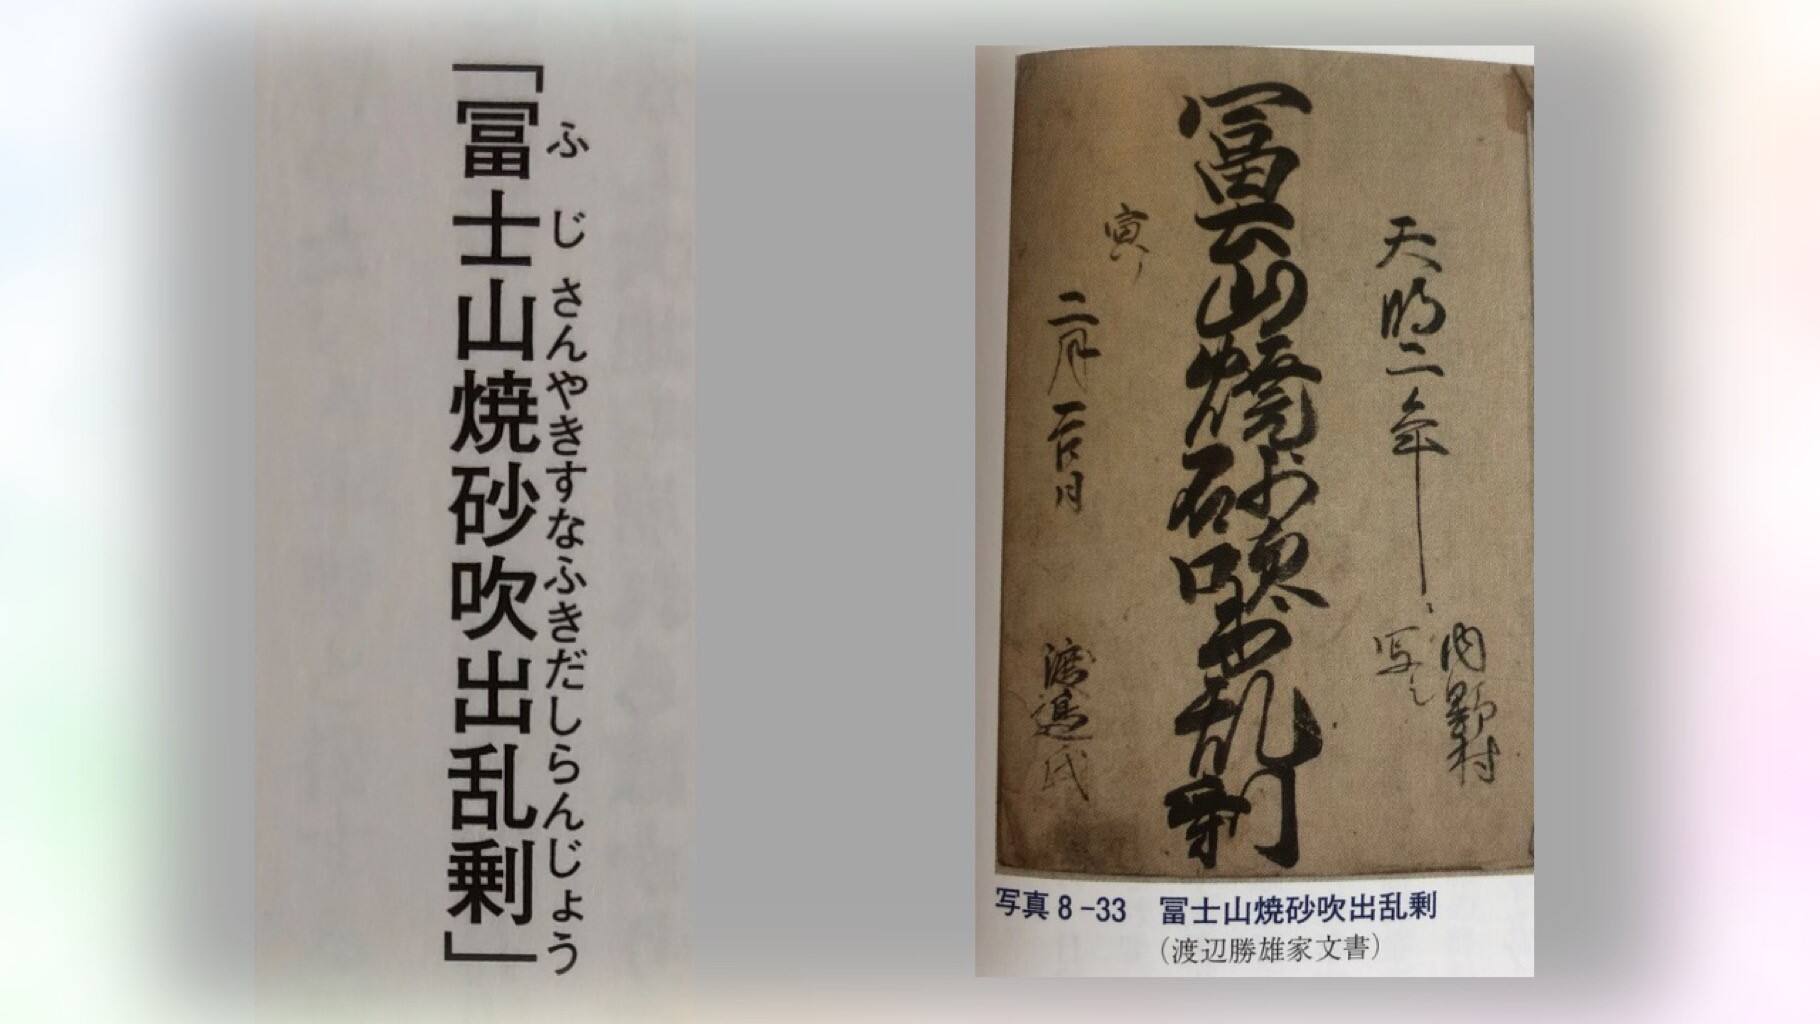 「冨士山焼砂吹出乱剰」
ふじさんやきすなふきだしらんじょう
天明二年
内野村
写之
冨士山焼砂吹出乱剰
寅ノ
二月吉日
渡邉氏
写真8-33 冨士山焼砂吹出乱剰
(渡辺勝雄家文書)